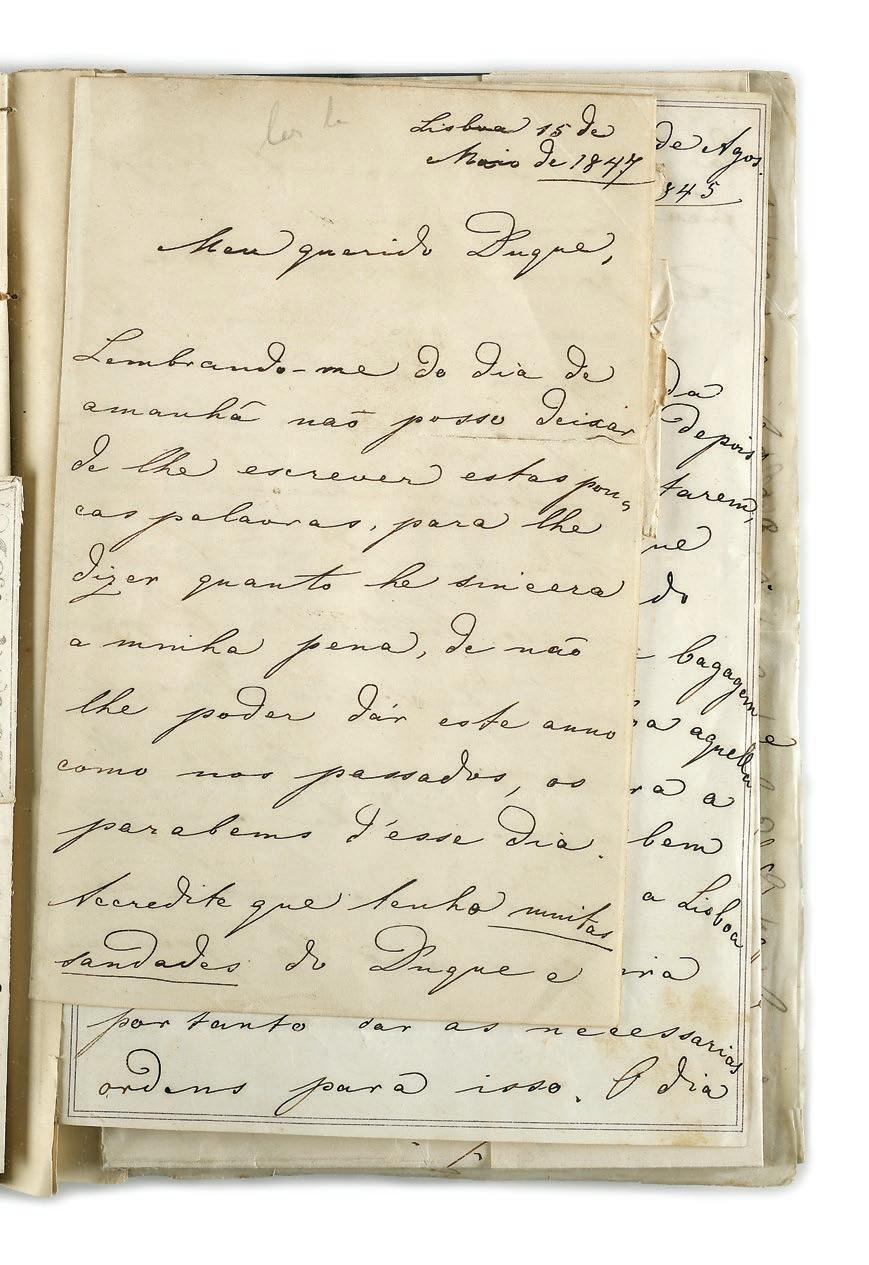 Lisboa 15 de
Maio de 1847
Meu querido Duque,
Lembrando-me do dia de
amanhã não posso deixar
de lhe escrever estas pou=
cas palavras, para lhe
dizer quanto he sincera
a minha pena, de não
lhe poder dár este anno
como nos passados, os
parabems d'esse dia.
Accredite que tenho muitas
saudades do Duque e
de Agos.
845
da
depois
tarem,
que
do
bagagem
aquella
ra a
bem
a Lisboa
portanto dar as necessarias
ordens para isso. O dia